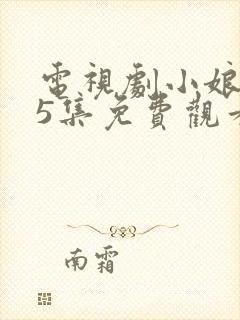 電視劇小娘
5集免費觀
南霜